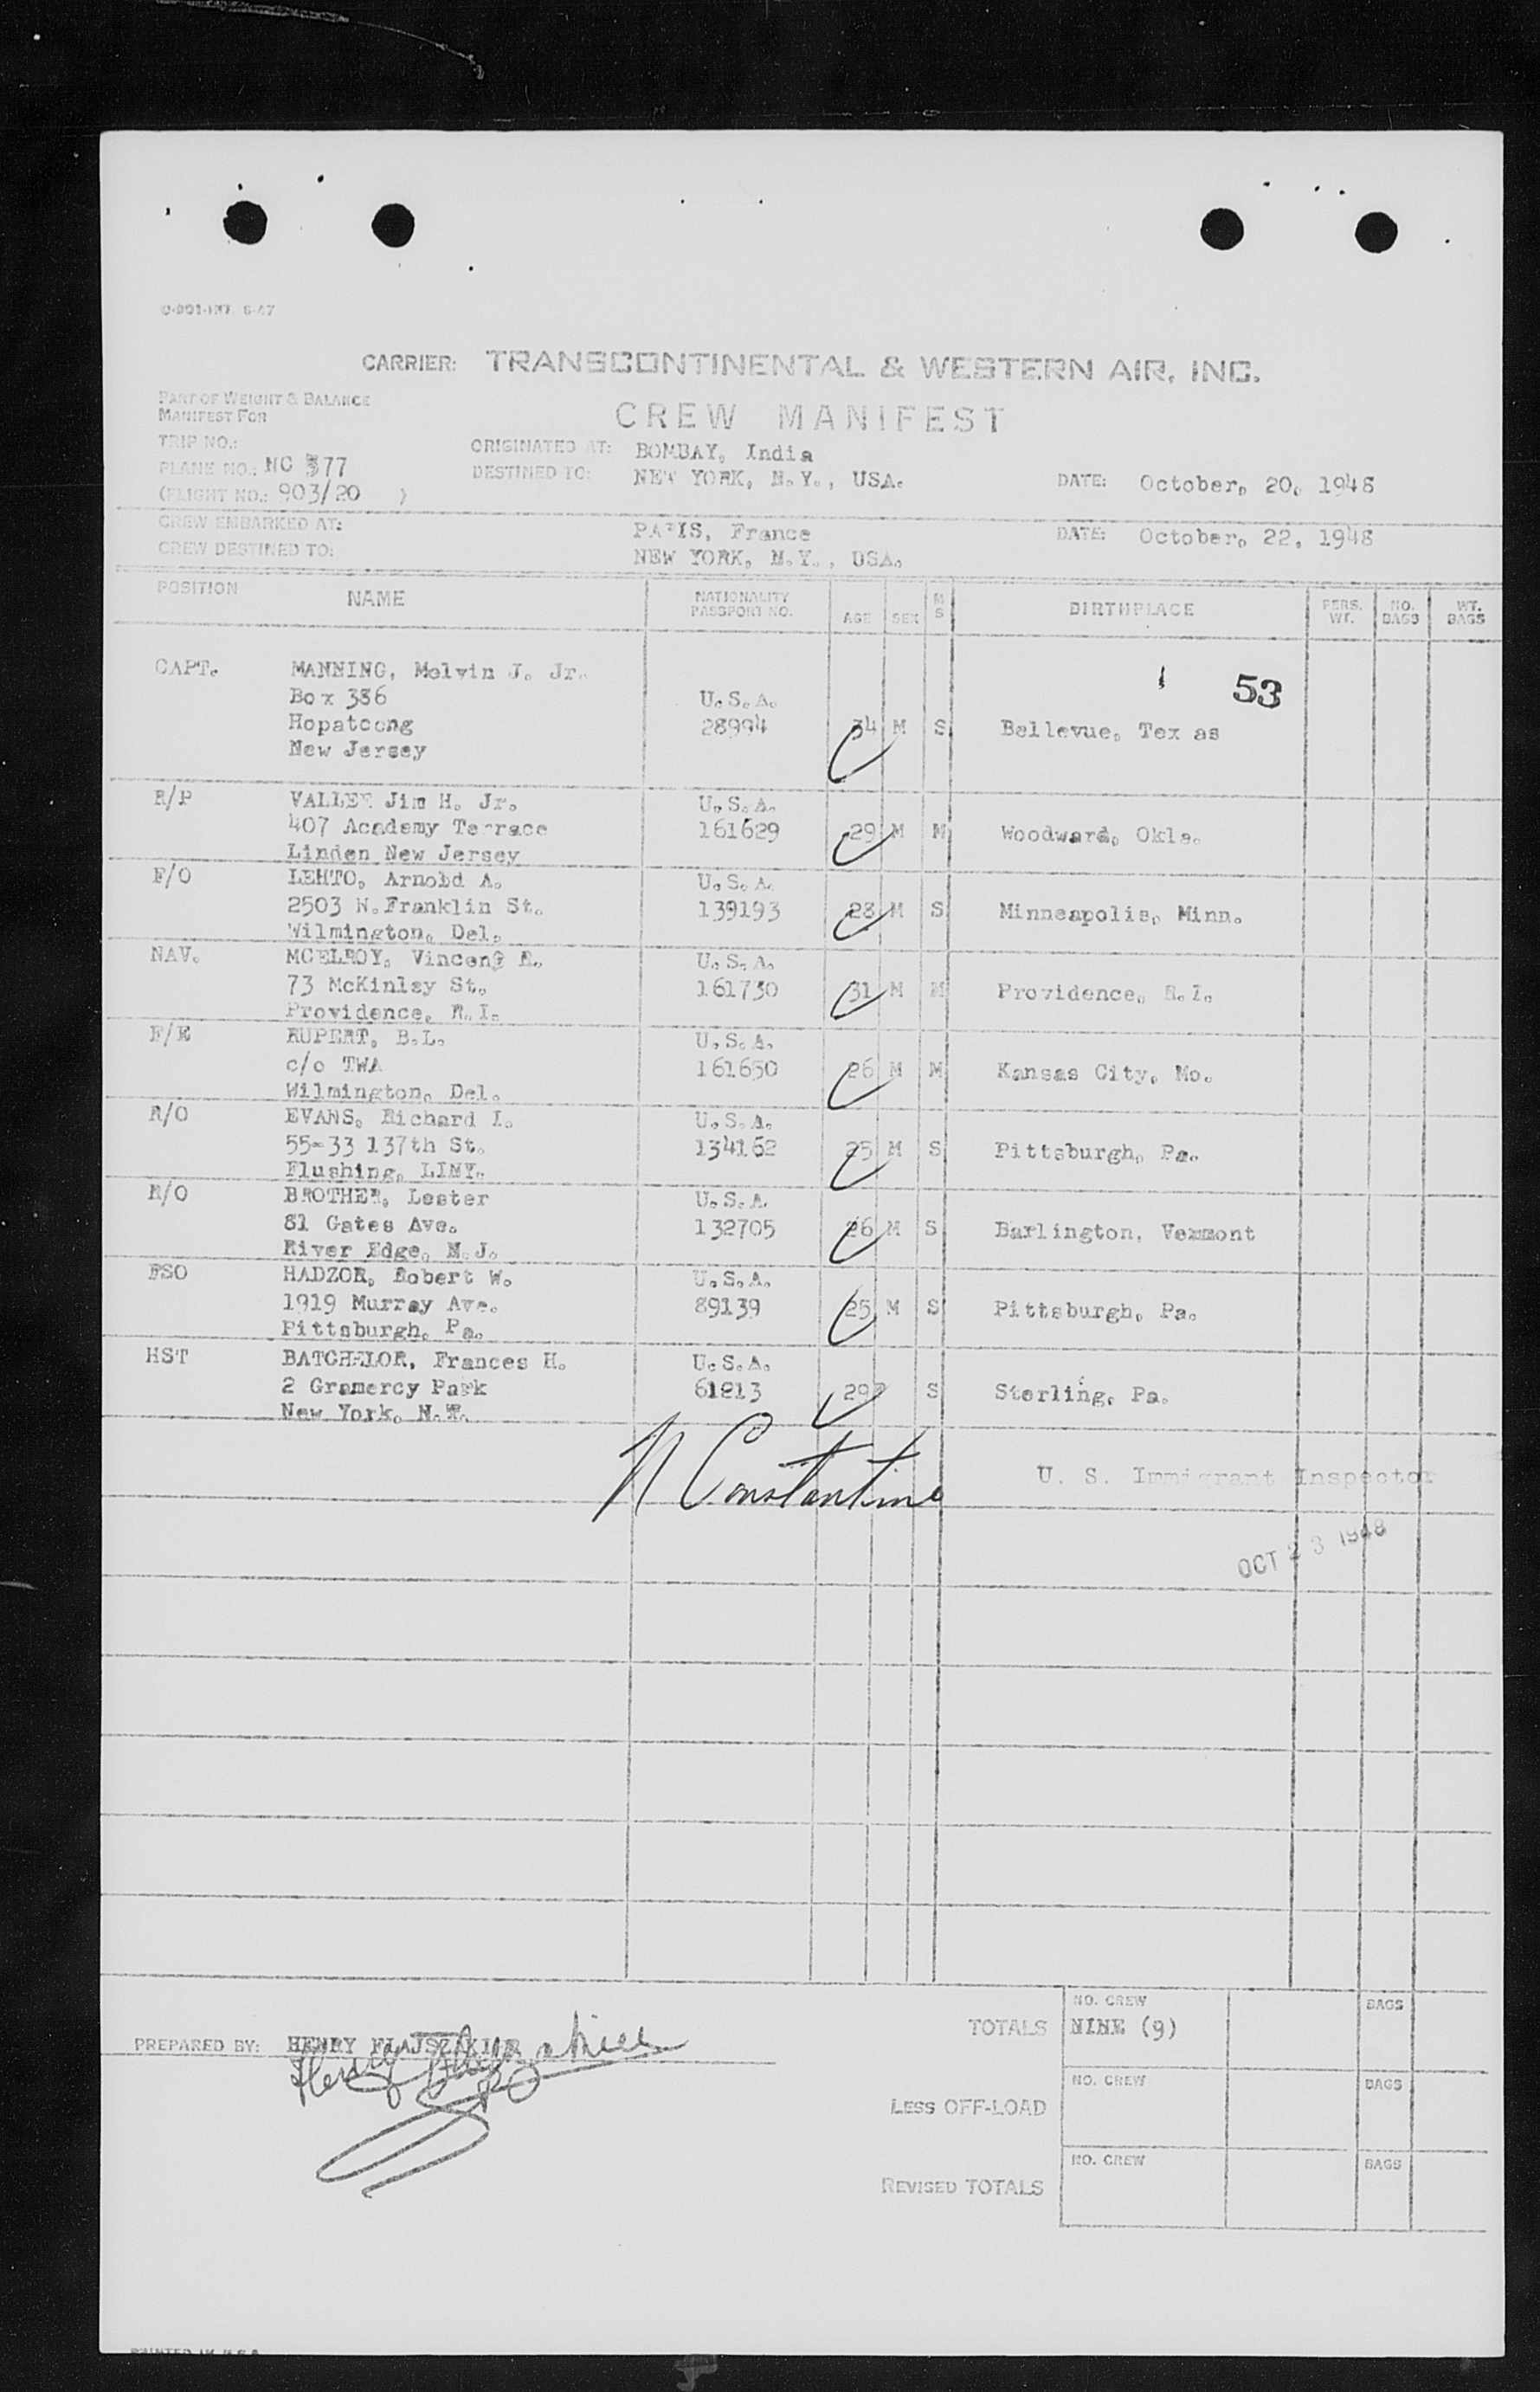 O-901-INT. 6-47
CARRIER: TRANSCONTINENTAL & WESTERN AIR, INC.
PART OF WEIGHT & BALANCE
MANIFEST FOR
CREW MANIFEST
TRIP NO.:
ORIGINATED AT: BOMBAY, India
PLANE NO.: NC 377
DESTINED TO: NEW YORK, N.Y., USA.
DATE: October, 20, 1948
(FLIGHT NO.: 903/20 )
CREW EMBARKED AT: PARIS, France
DATE: October, 22, 1948
CREW DESTINED TO: NEW YORK, N.Y., USA.
POSITION NAME NATIONALITY PASSPORT NO. AGE SEX M S BIRTHPLACE PERS. WT. NO. BAGS WT. BAGS
53
CAPT. MANNING, Melvin J. Jr.
Box 386 U.S.A.
Hopatcong 28994 34 M S Bellevue, Tex as
New Jersey
R/P VALLEE Jim H. Jr. U.S.A.
407 Academy Terrace 161629 29 M M Woodward, Okla.
Linden New Jersey
F/O LEHTO, Arnold A. U.S.A.
2503 W.Franklin St. 139193 28 M S Minneapolis, Minn.
Wilmington, Del.
NAV. MCELROY, Vincent R. U.S.A.
73 McKinley St. 161730 31 M M Providence, R.I.
Providence, R.I.
F/E RUPERT, B.L. U.S.A.
c/o TWA 161650 26 M M Kansas City, Mo.
Wilmington, Del.
R/O EVANS, Richard I. U.S.A.
55-33 137th St. 134162 25 M S Pittsburgh, Pa.
Flushing, LINY.
R/O BROTHER, Lester U.S.A.
81 Gates Ave. 132705 26 M S Barlington, Vermont
River Edge, N.J.
FSO HADZOR, Robert W. U.S.A.
1919 Murray Ave. 89139 25 M S Pittsburgh, Pa.
Pittsburgh, Pa.
HST BATCHELOR, Frances H. U.S.A.
2 Gramercy Park 61813 29 S Sterling, Pa.
New York, N.Y.
N Constantine
U. S. Immigrant Inspector
OCT 23 1948
TOTALS NO. CREW NINE (9) BAGS
PREPARED BY: HENRY
Henry
LESS OFF-LOAD NO. CREW BAGS
REVISED TOTALS NO. CREW BAGS
PRINTED IN U.S.A.